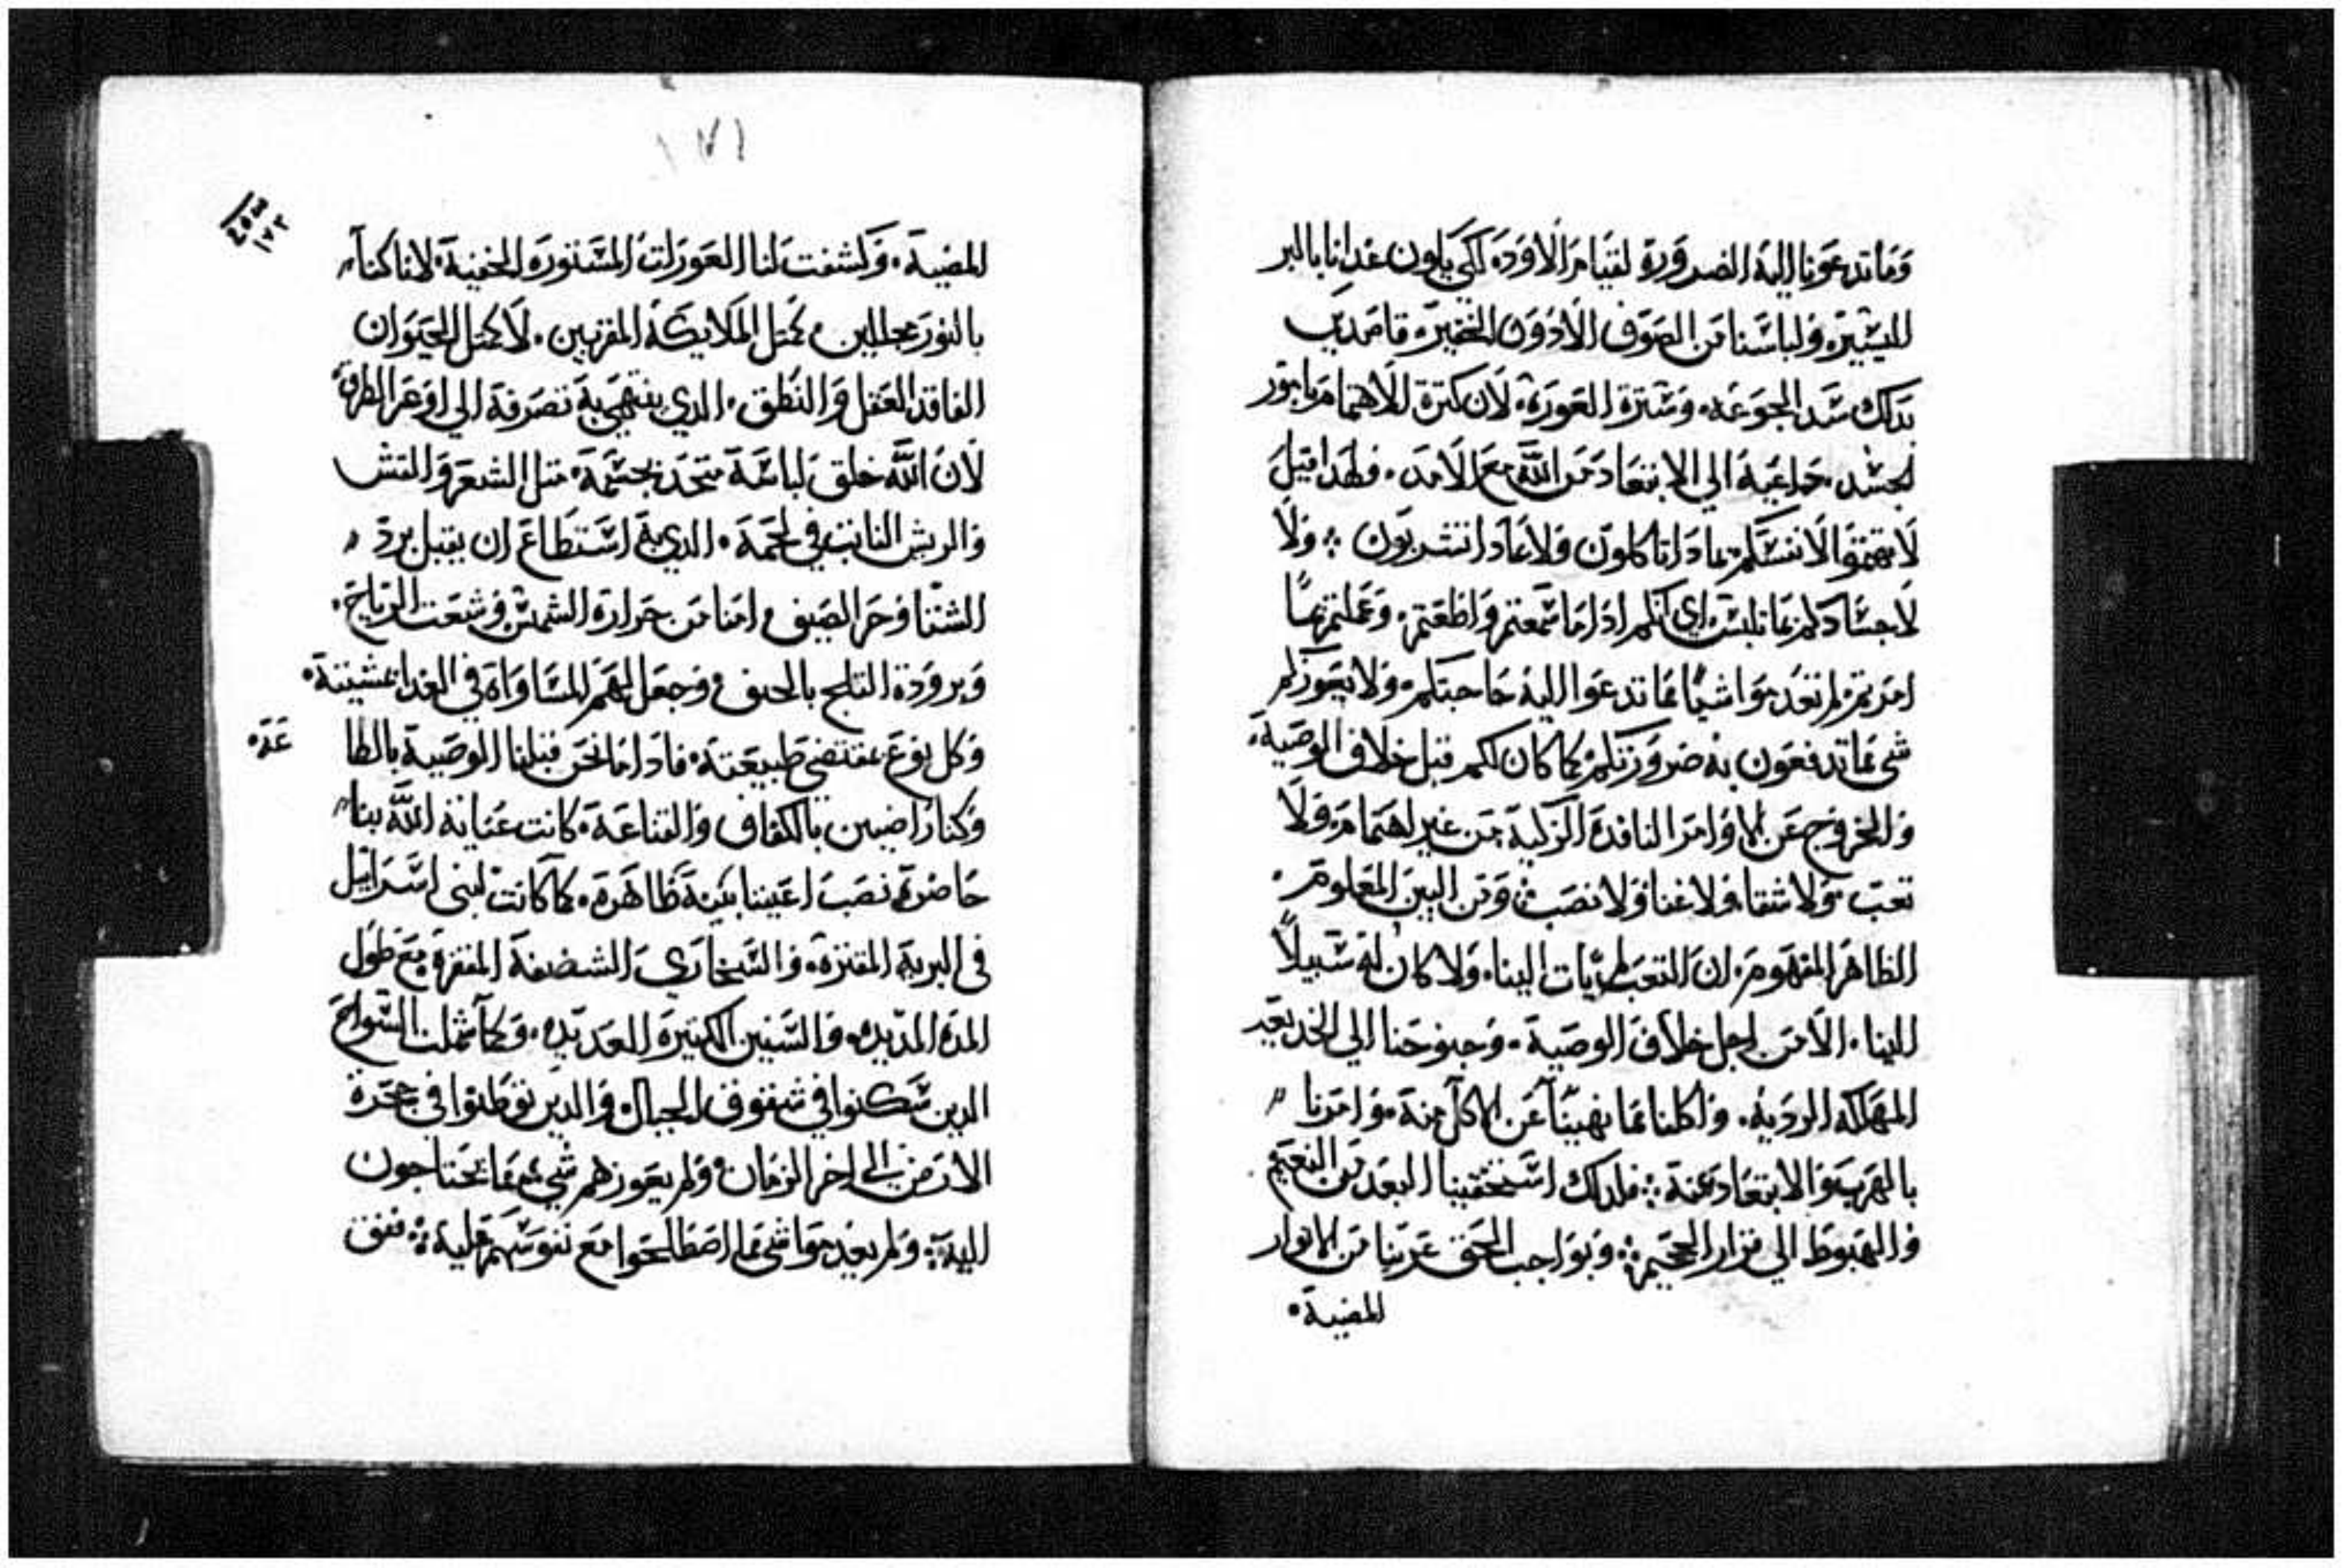 وماتدعونا اليه الضرورة لقيام الاود، لكي يكون غدانا بالبر
اليسير، ولباسنا من الصوف الادون الحقير، قاصدين
بدلك سد الجوعه، وسترة العورة، لان كترة الاهتمام بامور
الجسد، داعية الي الابتعاد من الله مع الامد، فلهدا قيل
لا تهتموا لانفسكم بمادا تاكلون ولا بمادا تشربون ؛ ولا
لاجسادكم بما تلبس، اي انكم ادا ما سمعتم واطعتم، وعملتم بما
امرتم، لم تعدموا شيا مما تدعوا اليه حاجتكم، ولا يعوزكم
شي مما تدفعون به ضرورتكم، كما كان لكم قبل خلاف الوصية،
والخروج عن الاوامر النافدة الزكية، من غير اهتمام، ولا
تعب، ولا شقا، ولا عنا، ولا نصب، ومن البين المعلوم،
الظاهر المفهوم، ان التعب لم يات الينا، ولا كان له سبيلاً
الينا، الا من اجل خلاف الوصية، وجنوحنا الي الخديعه
المهلكه الرديه، واكلنا مما نهينا عن الاكل منه، وامرنا
بالهرب والابتعاد عنه ؛ فلدلك استحقينا البعد من النعيم
والهبوط الي قرار الجحيم ؛ وبواجب الحق عرينا من الانوار
المضية،
١٧١
١٧٢
المضية، وكشفت لنا العورات المستورة الخفية، لاننا كنا
بالنور مجللين، كمتل الملايكة المقربين، لا كمتل الحيوان
الفاقد العقل والنطق، الدي ينتهي به تصرفه الي اوعر الطرق
لان الله خلق لباسه متحد بجسمه، متل الشعر والقش
والريش النابت في لحمه، الدي به استطاع ان يقبل برد
الشتا وحر الصيف، امنا من حرارة الشمس، وشعت الرياح،
وبرودة التلج بالحيف، وجعل لهم المساواة في الغدا عشيته،
وكل نوع بمقتضي طبيعته، فادا ما نحن قبلنا الوصية بالطا
عه،
وكنا راضيين بالكفاف والقناعة، كانت عناية الله بنا
حاضرة نصب اعيننا بينة ظاهرة، كما كانت لبني اسراييل
في البرية المقفزة، والصحاري الشضفة المقفرة، مع طول
المدة المديده، والسنين الكتيرة العديده، وكما شملت السواح
الدين سكنوا في شقوق الجبال، والدين توطنوا في جحرة
الارض الي اخر الزمان، ولم يعوزهم شي مما يحتاجون
اليه ؛ ولم يعدموا شي مما اصطلحوا مع نفوسهم عليه ؛